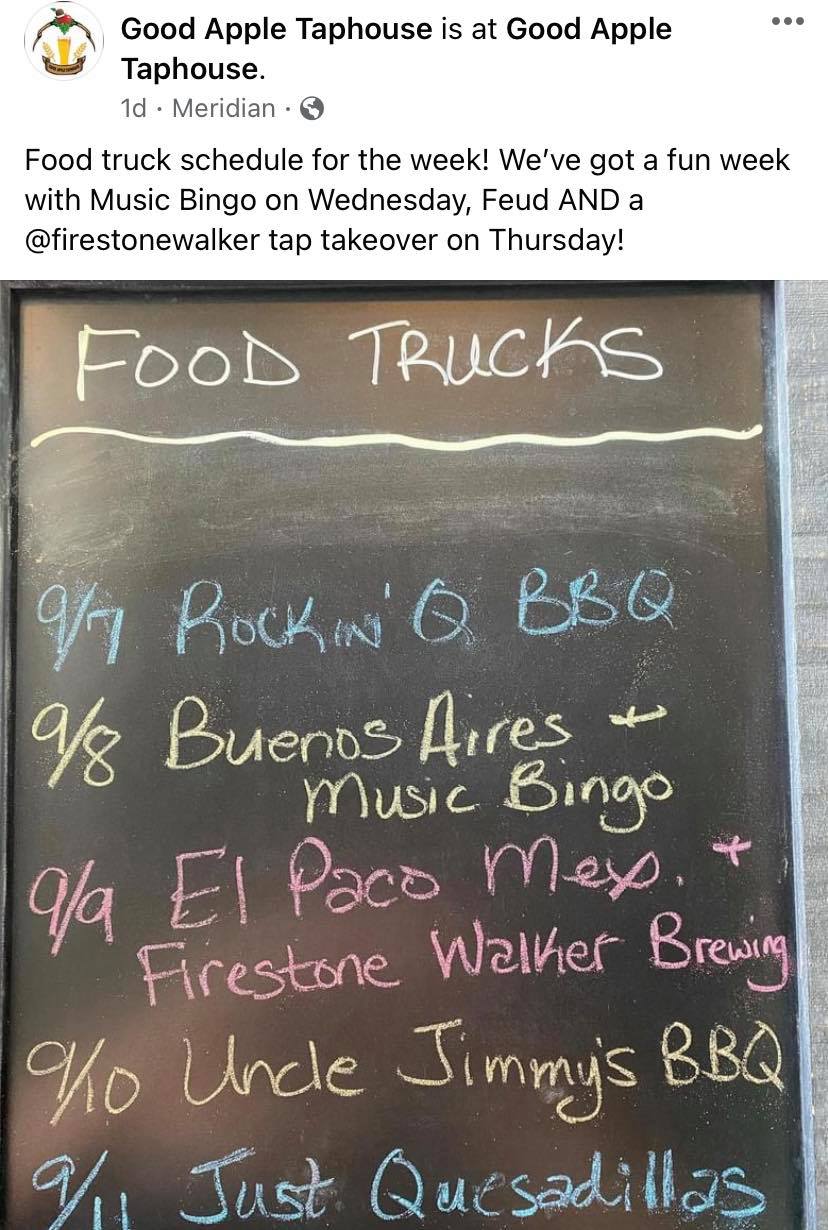 Good Apple Taphouse is at Good Apple
Taphouse.
1d · Meridian ·
Food truck schedule for the week! We've got a fun week
with Music Bingo on Wednesday, Feud AND a
@firestonewalker tap takeover on Thursday!
FOOD TRUCKS
9/7 ROCKIN' Q BBQ
9/8 Buenos Aires +
Music Bingo
9/9 El Paco Mex. +
Firestone Walker Brewing
9/10 Uncle Jimmy's BBQ
9/11 Just Quesadillas